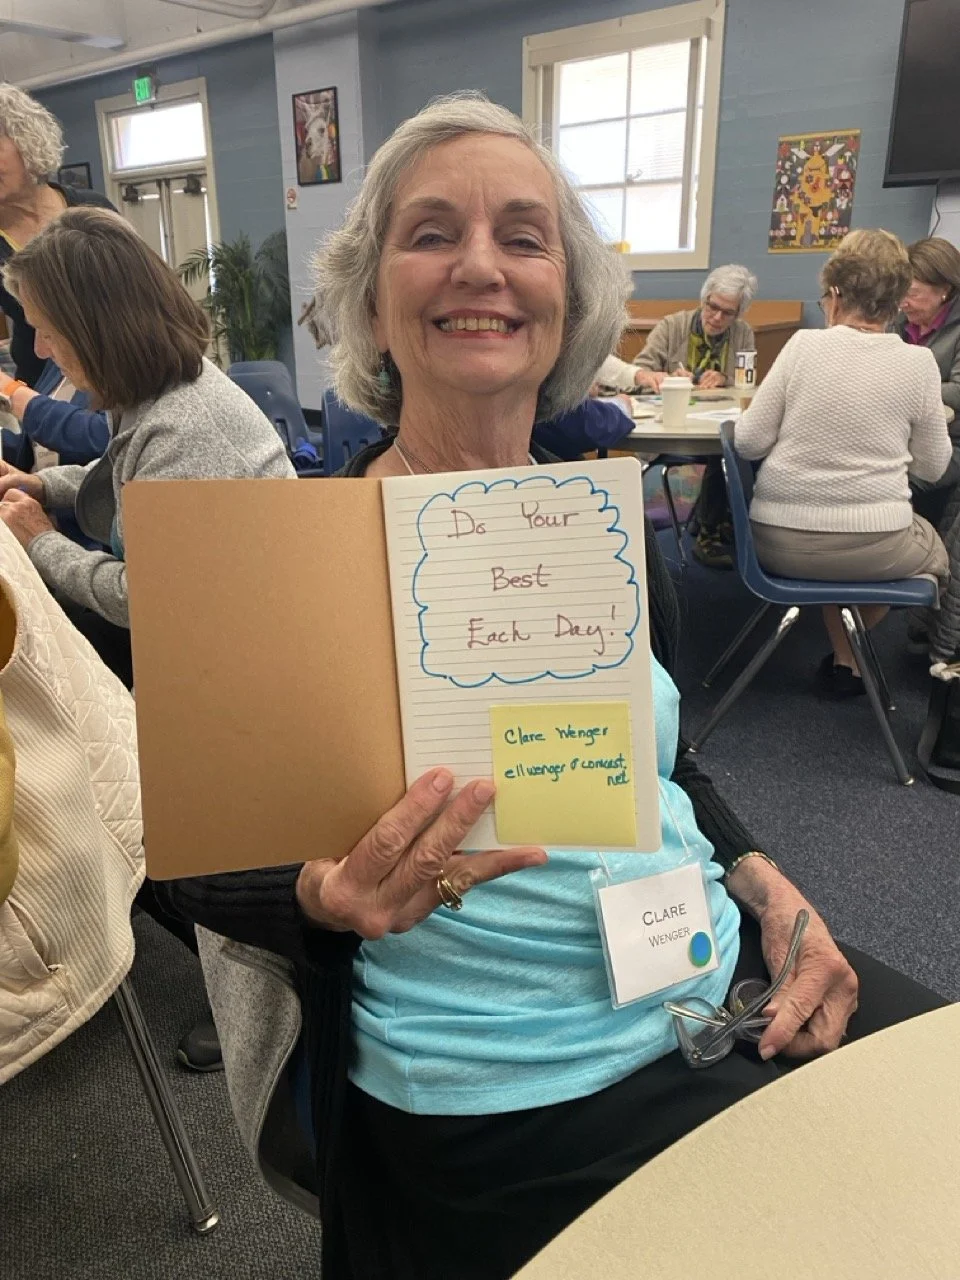 EXIT
Do Your
Best
Each Day!
Clare Wenger
ellwenger@comcast.
net
CLARE
WENGER